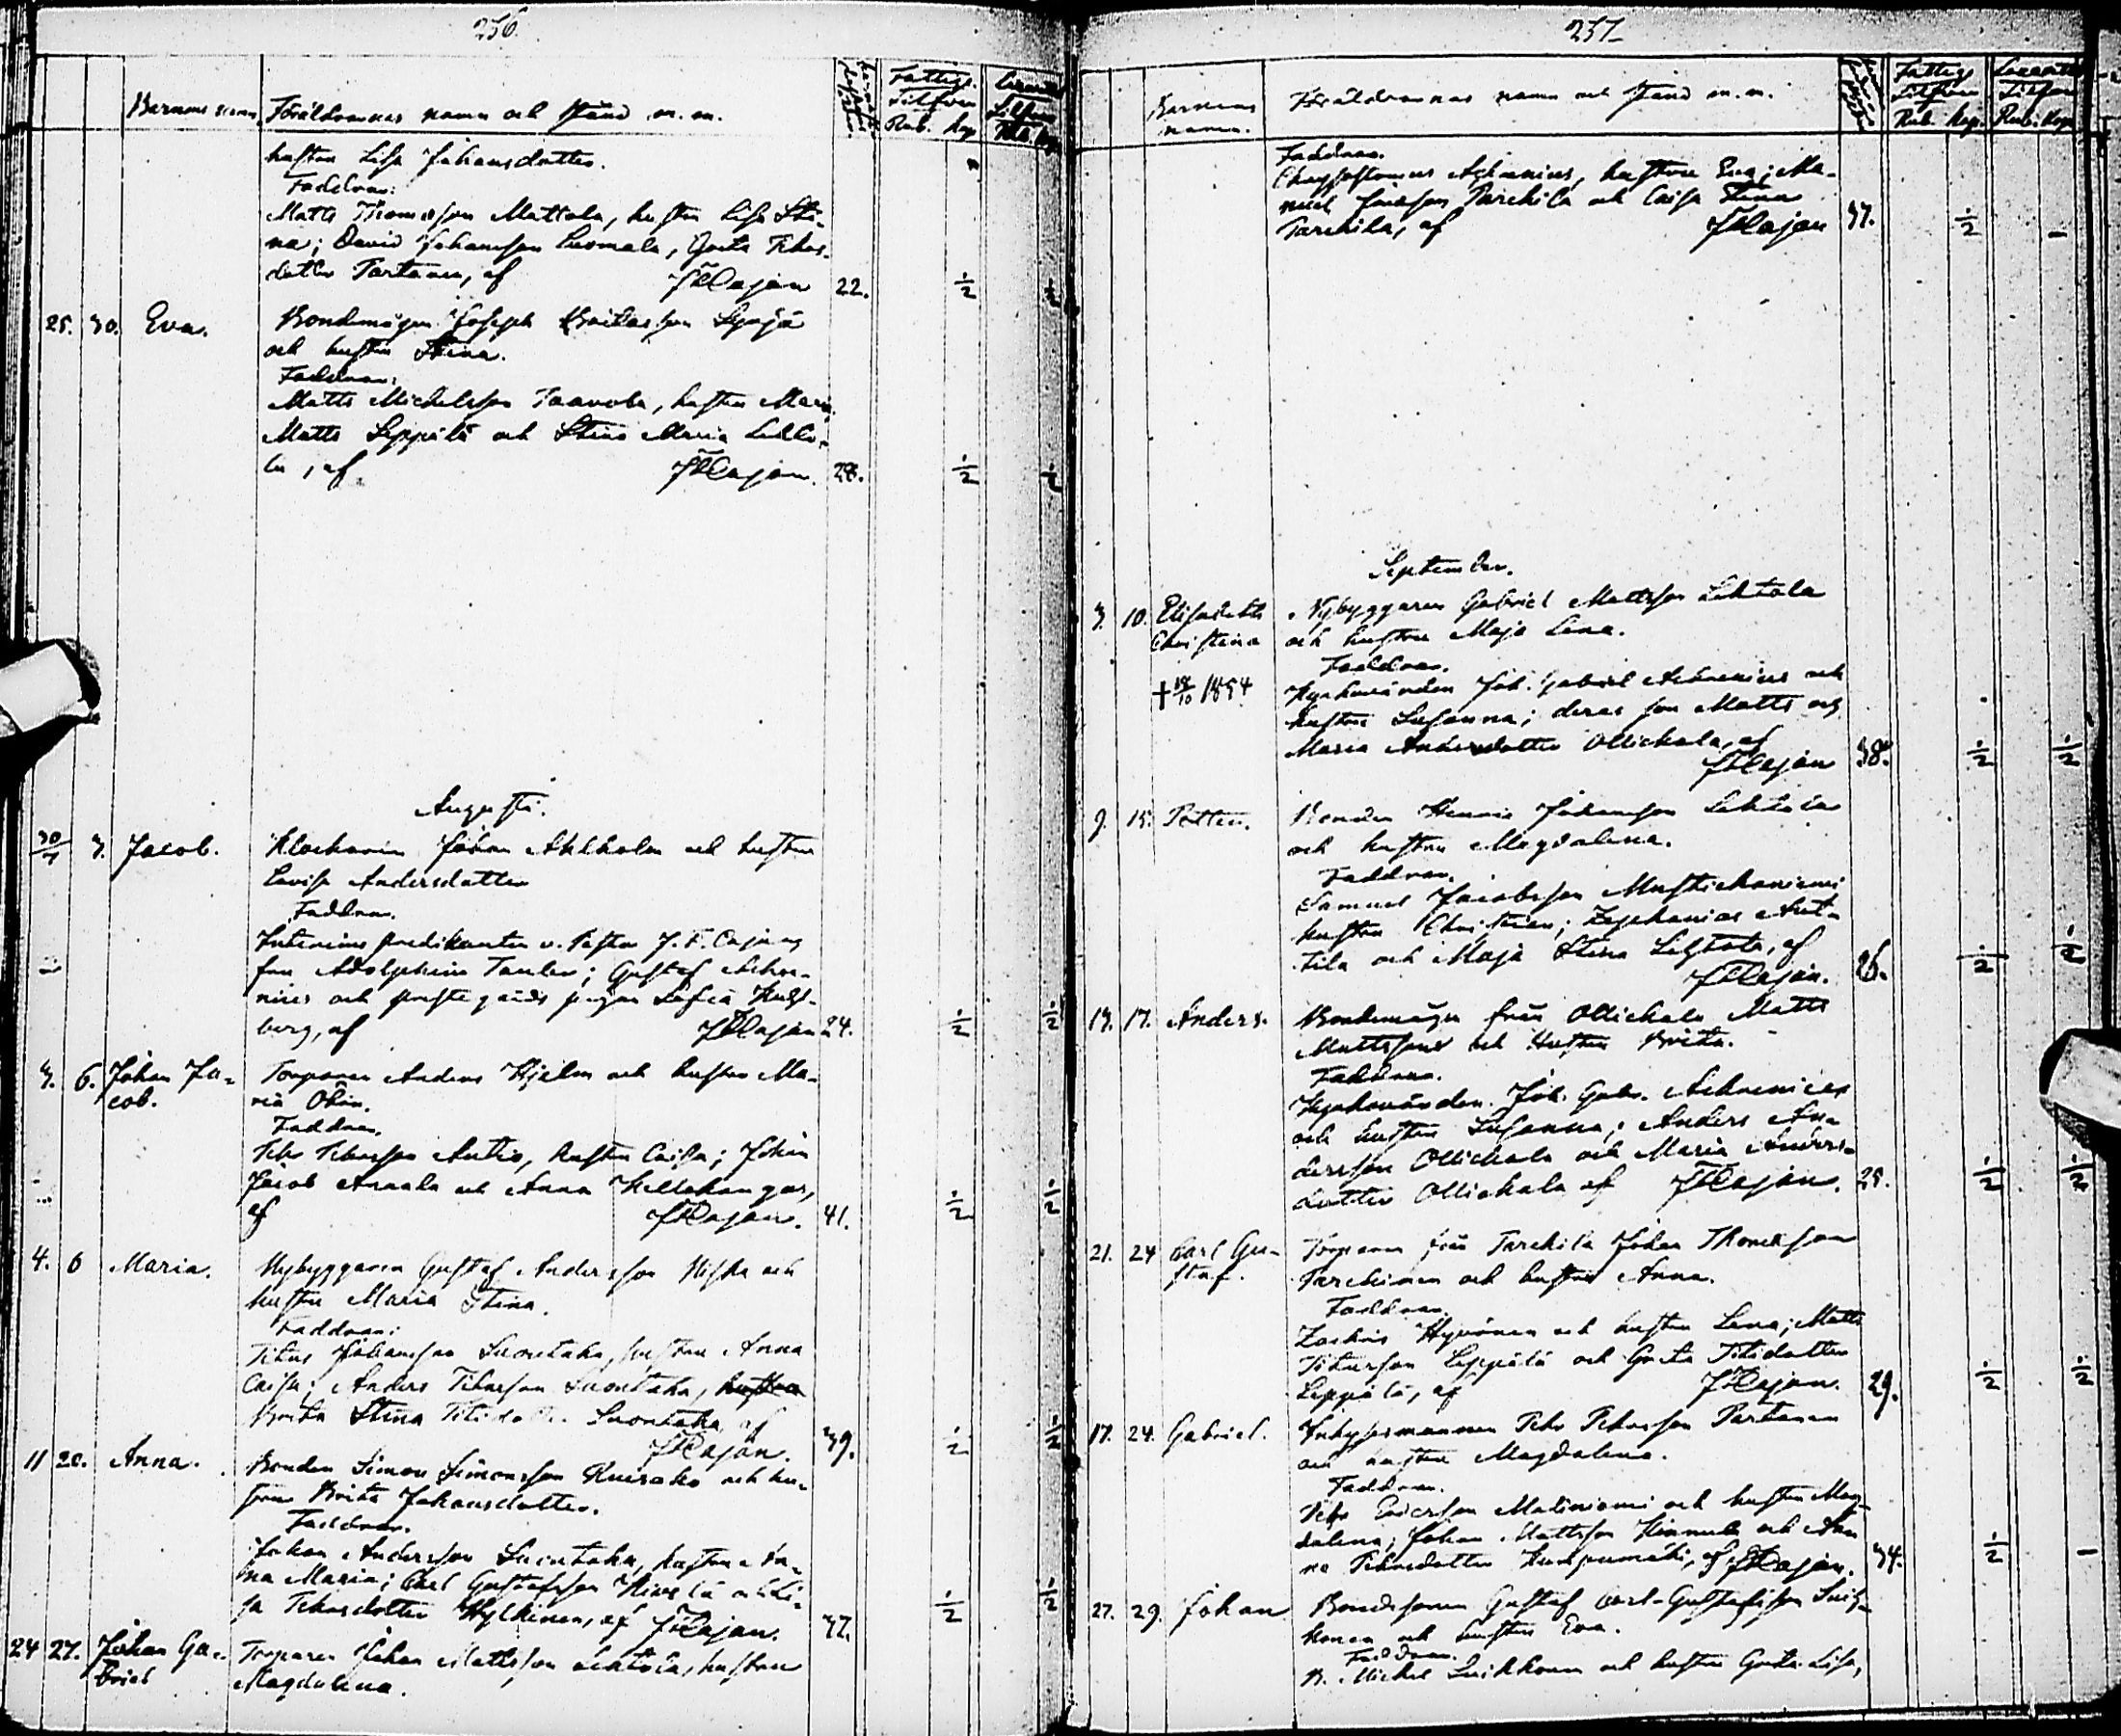 256.
Barnens namn. Föräldrarnas namn och stånd m.m.
Fattigs Tilfven
Rub. Kop
hustru Lisa Johansdotter.
Faddrar:
Matts Thomasson Mattala, hustru Lisa Sti-
na; David Johansson Luomala, Greta Petters-
dotter Partanen, af JFCajan 22. ½ ½
25. 30. Eva. Bondemågen Joseph Heikksson Leppä
och hustru Stina.
Faddrar:
Matts Michelsson Paavola, hustru Maria,
Matts Seppälä och Stina Maria
la, af JFCajan. 28. ½ ½
Augusti.
30/7 3. Jacob. Klockaren Johan Ahlholm och hustru
Lovisa Andersdotter
Faddrar.
Interims predikanten v. Pastor J. F. Cajan och
fru Adolphina Tauler; Gustaf Achre-
nius och prestegårds pigan Sofia
berg, af JFCajan 24. ½ ½
3. 6. Johan Ja-
cob. Torparen Anders Hjelm och hustru Ma-
ria
Faddrar.
Petter Pettersson Autio, hustru Caisa; Johan
Jacob Annala och Anna Kellokangas,
af JFCajan. 41. ½ ½
4. 6 Maria. Nybyggaren Gustaf Andersson Niska och
hustru Maria Stina.
Faddrar:
Titus Johansson Suontaka, hustru Anna
Caisa; Anders Titusson Suontaka, hustru
Brita Stina Titidotter Suontaka, af
JFCajan. 39. ½ ½
11 20. Anna. Bonden Simon Simonsson Ruuska och hu-
stru Brita Johansdotter.
Faddrar.
Johan Andersson Suontaka, hustru An-
na Maria; Carl Gustafsson Kivelä och Li-
sa Pettersdotter Hylkinen, af JFCajan. 32. ½ ½
24 27. Johan Ga-
briel Torparen Johan Mattsson Lehtola, hustru
Magdalena.
257
Barnens
namn. Föräldrarnas namn och stånd m.m.
Fattigs Tilfven
Rub. Kop. Rub. Kop
Faddrar.
Chrysostomus Achrenius, hustru Eva; Ma-
nuel Ericsson Tarkila och Caisa Stina
Tarkila, af JFCajan 37. ½ –
September.
3. 10. Elisabeth
Christina Nybyggaren Gabriel Mattsson Lehtola
och hustru Maja Lena.
Faddrar.
† 18/10 1854 Kyrkovärden Joh. Gabriel Achrenius och
hustru Susanna; deras son Matts och
Maria Andersdotter Ollickala, af
JFCajan 38. ½ ½
9. 15. Petter. Bonden Henric Johansson Lehtola
och hustru Magdalena.
Faddrar.
Samuel Jacobsson Mustickaniemi
hustru Christina; Zephanias Ant-
tila och Maja Stina Lehtola, af
JFCajan. 26. ½ ½
13. 17. Anders. Bondemågen från Ollickala Matts
Mattsson och Hustru Brita.
Faddrar.
Kyrkovärden Joh. Gabr. Achrenius
och hustru Susanna; Anders An-
dersson Ollickala och Maria Anders-
dotter Ollickala af JFCajan. 25. ½ ½
21. 24 Carl Gu-
staf. Torparen från Tarckila Johan Thomasson
Tarckinen och hustru Anna.
Faddrar.
Zachris Hyvönen och hustru Lena; Matts
Titusson Leppälä och Greta Titidotter
Leppälä, af JFCajan. 29. ½ ½
17. 24. Gabriel. Inhysesmannen Petter Pettersson Partanen
och hustru Magdalena.
Faddrar.
Petter Ericsson Matiniemi och hustru Mag-
dalena; Johan Mattsson Kinnula och An-
na Pettersdotter af JFCajan. 34. ½ –
27. 29. Johan Bondsonen Gustaf Carl-Gustafsson Leik-
konen och hustru Eva.
Faddrar.
B. Michel Leikkonen och hustru Greta Lisa,